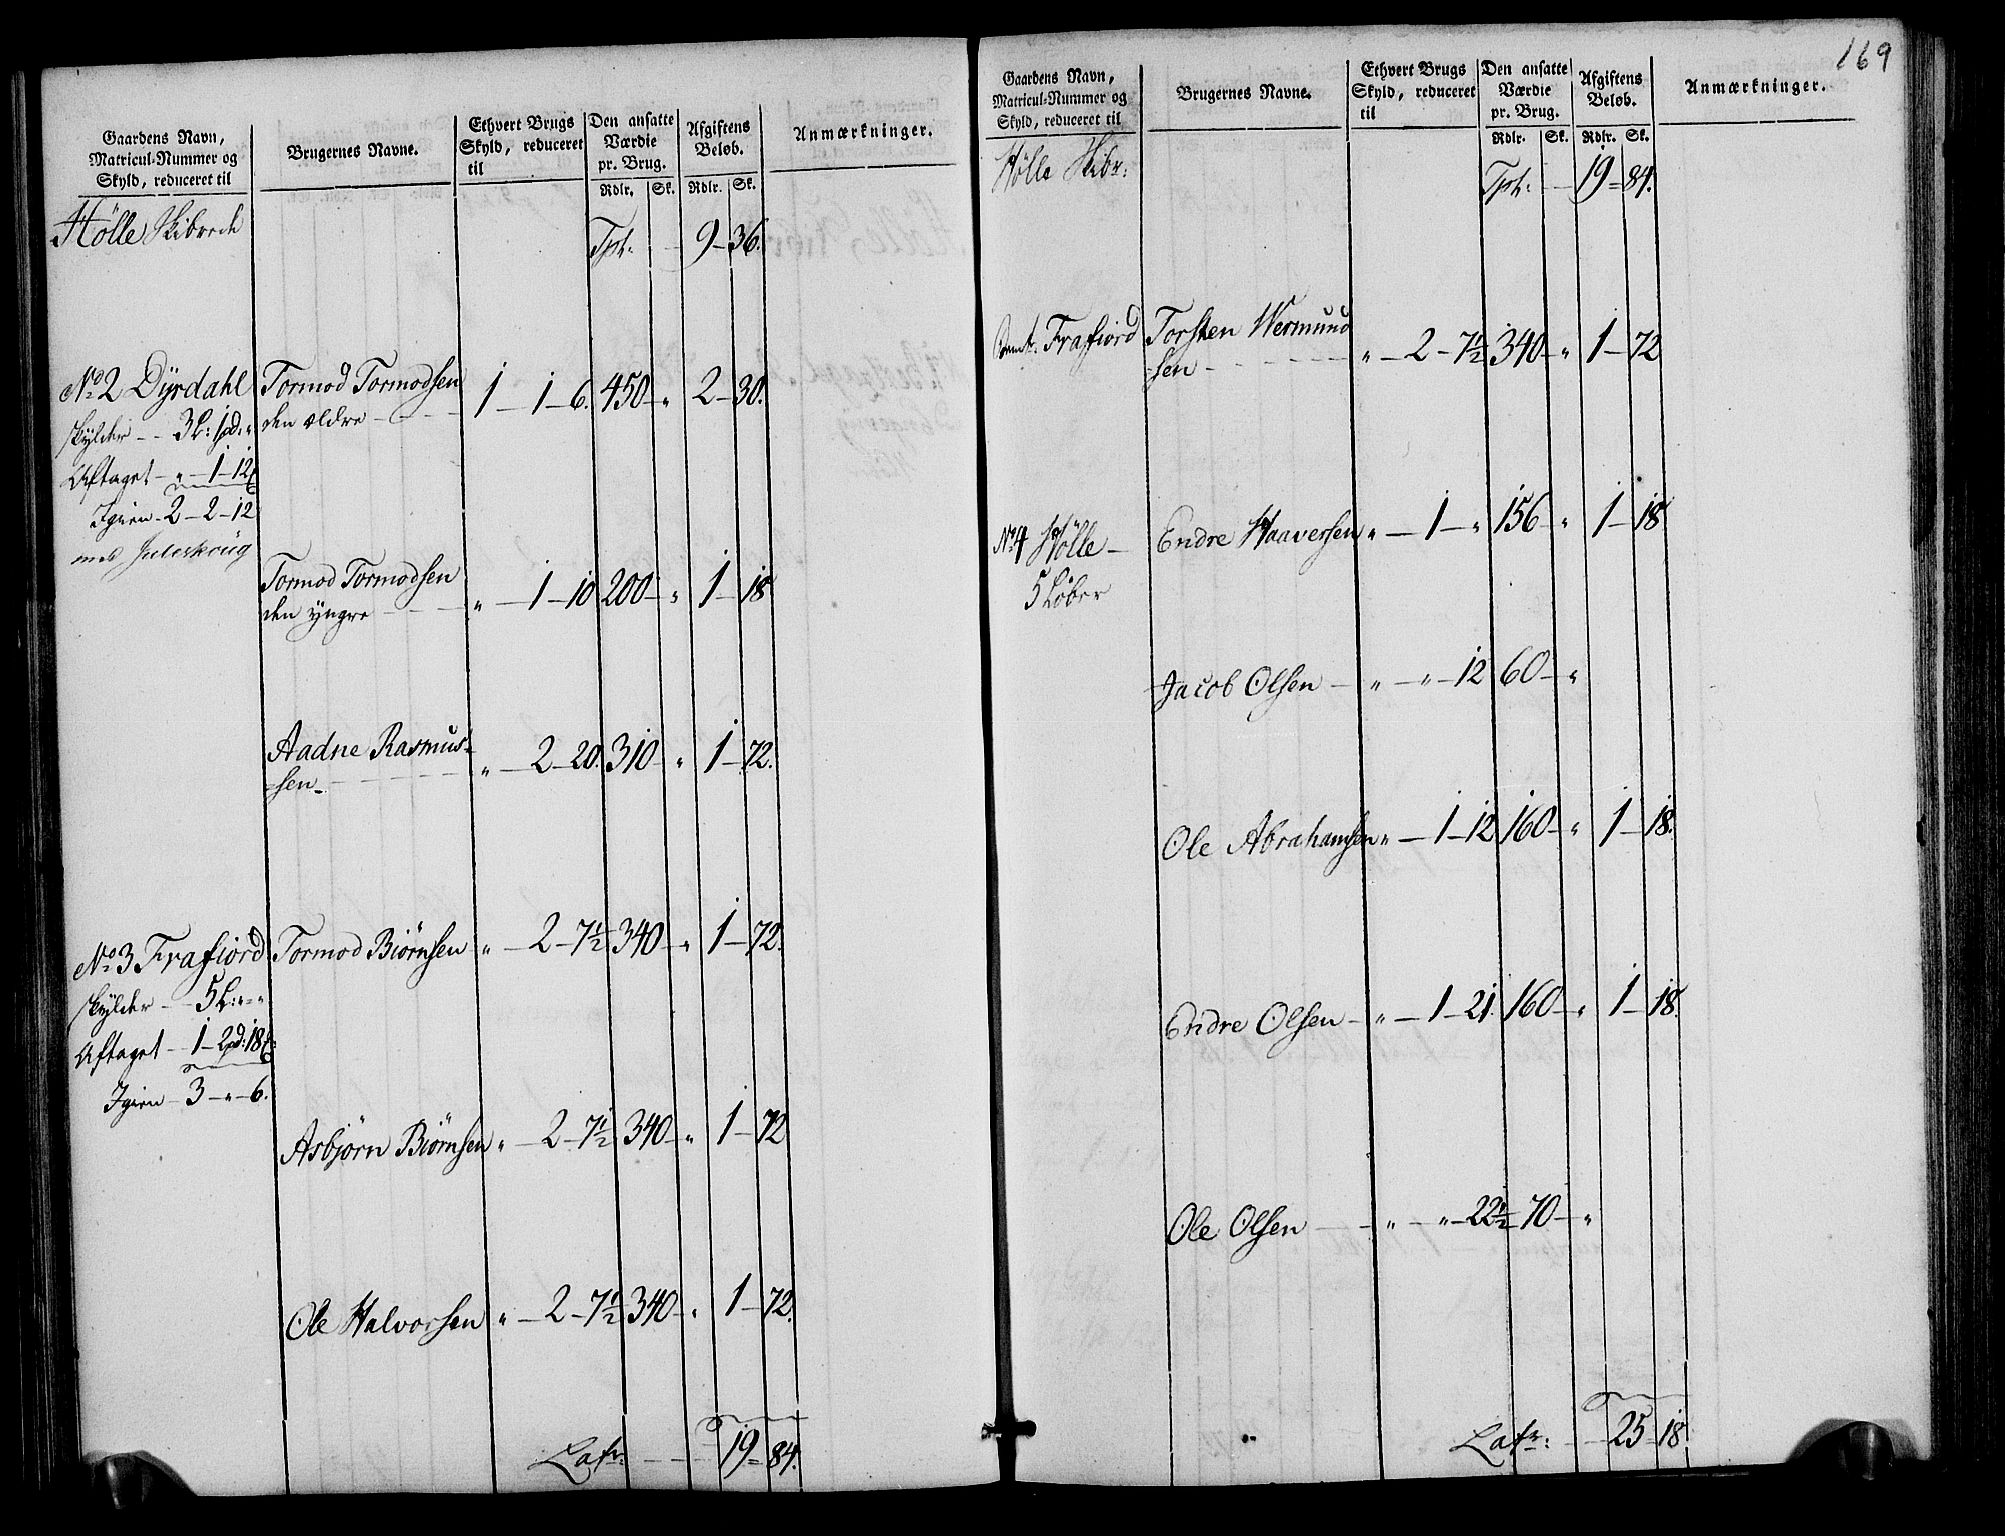 Gaardens Navn, Matricul-Nummer og Skyld, reduceret til | Brugernes Navne. | Ethvert Brugs Skyld, reduceret til | Den ansatte Værdie pr. Brug. | Afgiftens Beløb. | Anmærkninger.
Rdlr. Sk. Rdlr. Sk.
Hölle Skibrede
Tpt: 9 – 36.
No 2 Dÿrdahl Tormod Tormodsen 1 – 1 – 6. 450 – " 2 – 30.
skylder – 3 L: 1 pd: " den ældre
Aftaget – " – 1 – 12
Igien – 2 – 2 – 12
med Juleskoug
Tormod Tormodsen " – 1 – 10 200 – " 1 – 18
den yngre
Aadne Rasmus- " – 2 – 20. 310 – " 1 – 72.
sen
No 3 Frafiord Tormod Biørnsen " – 2 – 7½ 340 – " 1 – 72.
skylder – 5 L: " – "
Aftaget – 1 – 2 pd: 18
Igien – 3 – " – 6.
Asbjørn Biørnsen " – 2 – 7½ 340 – " 1 – 72
Ole Halvorsen " – 2 – 7½ 340 – " 1 – 72.
Latr: 19 – 84.
169
Gaardens Navn, Matricul-Nummer og Skyld, reduceret til | Brugernes Navne. | Ethvert Brugs Skyld, reduceret til | Den ansatte Værdie pr. Brug. | Afgiftens Beløb. | Anmærkninger.
Rdlr. Sk. Rdlr. Sk.
Hölle Skibr:
Tpt: 19 – 84.
Frafiord Torsten Wermund
sen " – 2 – 7½ 340 – " 1 – 72
No 4 Hölle – Endre Haaversen " – 1 – " 156 – " 1 – 18
5 Löber
Jacob Olsen " – " – 12 60 – "
Ole Abrahamsen " – 1 – 12 160 – " 1 – 18.
Endre Olsen – " – 1 – 21. 160 – " 1 – 18.
Ole Olsen " – " – 22½ 70 – "
Latr: 25 – 18.